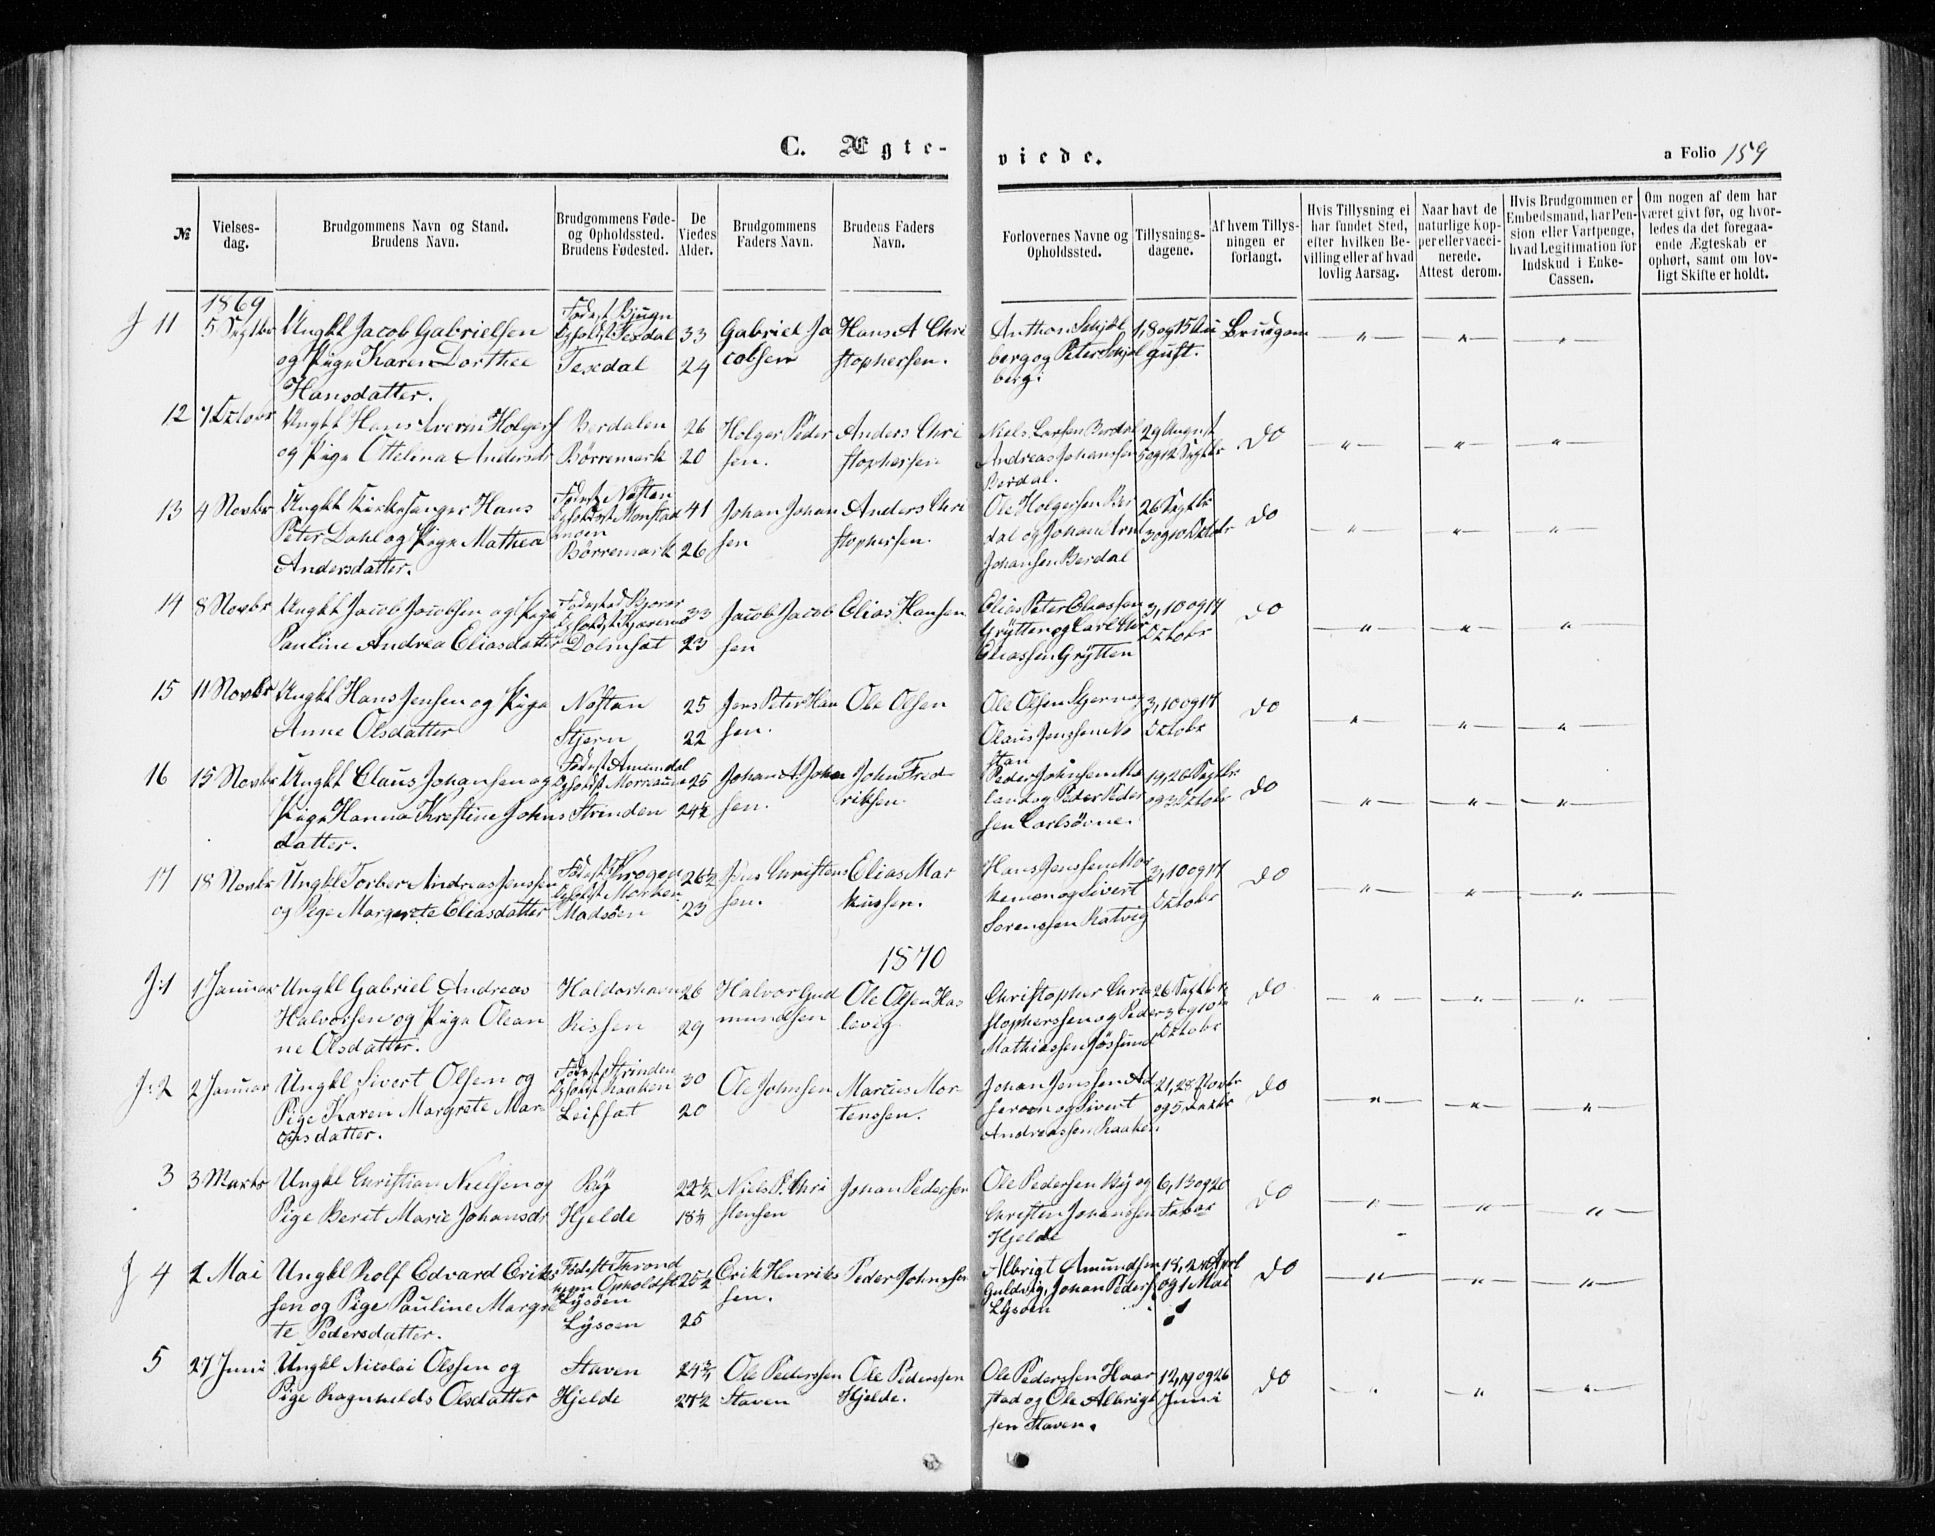 C. Ægte-
viede.
a Folio 159
№
Vielses-
dag.
Brudgommens Navn og Stand.
Brudens Navn.
Brudgommens Føde-
og Opholdssted.
Brudens Fødested.
De
Viedes
Alder.
Brudgommens
Faders Navn.
Brudens Faders
Navn.
Forlovernes Navne og
Opholdssted.
Tillysnings-
dagene.
Af hvem Tillys-
ningen er
forlangt.
Hvis Tillysning ei
har fundet Sted,
efter hvilken Be-
villing eller af hvad
lovlig Aarsag.
Naar havt de
naturlige Kop-
per eller vacci-
nerede.
Attest derom.
Hvis Brudgommen er
Embedsmand, har Pen-
sion eller Vartpenge,
hvad Legitimation for
Indskud i Enke-
Cassen.
Om nogen af dem har
været givt før, og hvor-
ledes da det foregaa-
ende Ægteskab er
ophørt, samt om lov-
ligt Skifte er holdt.
1869
11 5 Septbr Ungkl Jacob Gabrielsen
og Pige Karen Dorthee
Hansdatter.
Fødest Bjugn
Opholdst Tesdal
Tesedal
33
24
Gabriel Ja
cobsen
Hans A Chri
stophersen.
Anthon Schjøl
berg og Peter Schjøl
berg.
1, 8 og 15 Au
gust.
Brudgom
12 7 Octobr Ungkl Hans Iverin Holgers
og Pige Ottelina Andersdr
Berdalen
Børremark
26
20
Holger Peder
sen.
Anders Chri
stophersen
Niels Larsen Berdal
Andreas Johansen
Berdal.
29 August
5 og 12 Septbr
Do
13 4 Novbr Ungkl Kirkesanger Hans
Peter Dahl og Pige Mathea
Andersdatter.
Fødest Nøstan
Børremark
41
26
Johan Johan
sen
Anders Chri
stophersen.
Ole Holgersen Ber
dal og Johan Arnt
Johansen Berdal
26 Septbr
3 og 10 Octobr
Do
14 8 Novbr Ungkl Jacob Jacobsen og Pige
Pauline Andrea Eliasdatter
Dolmsæt
33
23
Jacob Jacob
sen
Elias Hansen
Elias Peter Eliassen
Grytten og Carl
Eliassen Grytten
3, 10 og 17
Octobr
Do
15 11 Novbr Ungkl Hans Jensen og Pige
Anne Olsdatter
Nøstan
Stjern
25
22
Jens Peter Han
sen.
Ole Olsen
Ole Olsen Stjern og
Olaus Jenssen Nø
stan
3, 10 og 17
Octobr
Do
16 15 Novbr Ungkl Claus Johansen og
Pige Hanna Kristine Johns
datter.
Strinden
25
24½
Johan A. Johan
sen.
John Fred-
riksen.
Peder Johnsen
land og Peder Peder
sen Carlsøvne.
19, 26 Septbr
og 3 Octobr
Do
17 18 Novbr Ungkl Torber Andreas Jenssen
og Pige Margrete Eliasdatter
Madsøen
26½
23
Jens Christens
sen.
Elias Mar
kussen.
Hans Jenssen Mor
kemoen og Sivert
Sorenssen Ratvig
3, 10 og 17
Octobr
Do
1870
J: 1 1 Januar Ungkl Gabriel Andreas
Halvorsen og Pige Olean
ne Olsdatter.
Haldorhavn
Rissen
26
29
Halvor Gud
mundsen
Ole Olsen Has
levig
Christopher Chri
stopherssen og Peder
Mathiassen Jøssund
26 Septbr
3 og 10
Octobr
Do
J: 2 2 Januar Ungkl Sivert Olsen og
Pige Karen Margrete Mar
cusdatter.
Fødest Strinden
Opholdst Raaken
Leifsæt
30
20
Ole Johnsen
Marcus Mor-
tenssen.
Johan Jenssen Ad
seroen og Sivert
Andreassen Raaken
21, 28 Novbr
og 5 Decbr
Do
3 3 Marts Ungkl Christian Nielsen og
Pige Beret Marie Johansdr
By
Hjelde
22½
18¼
Niels P. Chri
stensen
Johan Pedersen
Ole Pedersen By og
Christen Johanssen
Hjelde
6, 13 og 20
Febr
Do
J 4 2 Mai Ungkl Rolf Edvard Eriks
sen og Pige Pauline Margre
te Pedersdatter.
Fødest Thrond
hjem Opholdst
Lysøen
Lysøen
25½
25
Erik Henriks
sen.
Peder Johnssen
Albrigt Amundsen
Guldvig, Johan Peders
Lysøen
18, 24 April
og 1 Mai
Do
5 27 Juni Ungkl Nicolai Olssen og
Pige Ragnhelds Olsdatter
Staven
Hjelde
24¾
27½
Ole Pederssen
Staven
Ole Pederssen
Hjelde.
Ole Pederssen Haar
stad og Ole Albrigt
sen Staven.
12, 19 og 26
Juni
Do